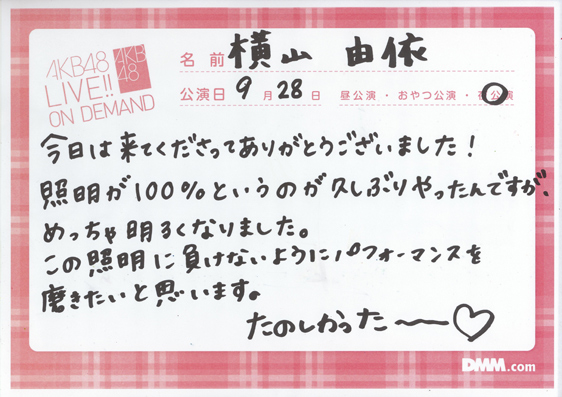 AKB48
LIVE!!
ON DEMAND
AKB
48
名前 横山 由依
公演日 9月28日 昼公演・おやつ公演・夜公演
今日は来てくださってありがとうございました!
照明が100%というのが久しぶりやったんですが、
めっちゃ明るくなりました。
この照明に負けないようにパフォーマンスを
磨きたいと思います。
たのしかった〜♡
DMM.com